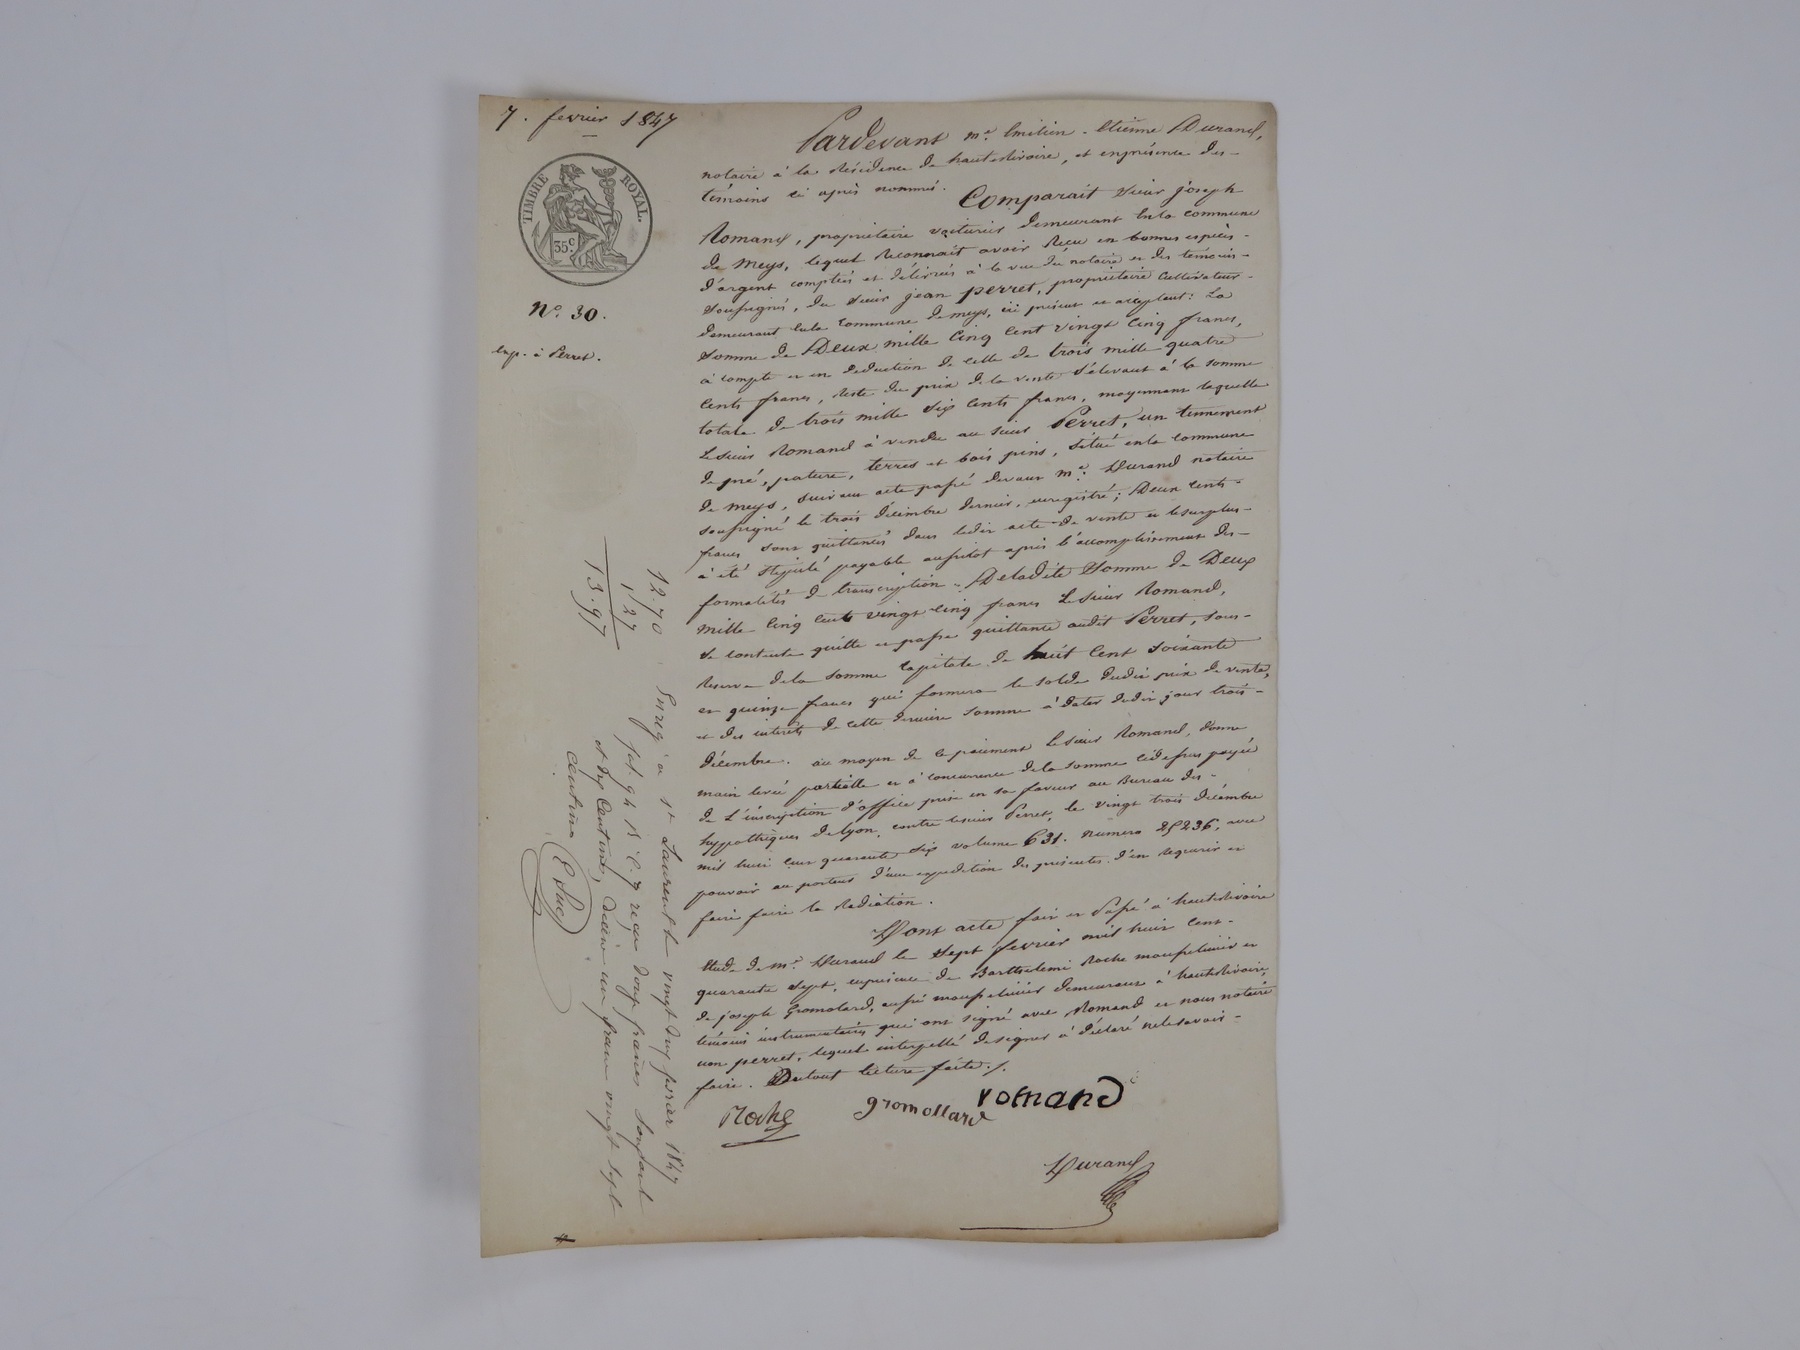 7. fevrier 1847
TIMBRE ROYAL.
35c.
No. 30.
Exp. à Perret.
Pardevant me. Emilien - Etienne Durand,
notaire à la Résidence de hauterivoire, et enprésence des-
témoins ci après nommés.
Comparait sieur joseph
Romand, propriétaire voiturier demeurant enla commune
de meys, lequel Reconnait avoir Recu en bonnes espèces-
d'argent comptées et délivrées à la vue du notaire et des témoins-
soussignés, du sieur jean perret, propriétaire cultivateur-
demeurant enla commune de meys, ici présent et acceptant: La
somme de Deux mille Cinq Cent vingt Cinq francs,
à compte et en déduction de celle de trois mille quatre
Cents francs, Reste du prix de la vente s'élevant à la somme
totale de trois mille six Cents francs, moyennant laquelle
Le sieur Romand à vendu au sieur Perret, un tennement
de pré, pature, terres et bois pins, situé enla commune
de meys, suivant acte passé devant me. Durand notaire
soussigné le trois décembre dernier, enregistré; Deux Cents-
francs sont quittancés dans ledit acte de vente et lesurplus-
à été stipulé payable aussitot après l'accomplissement des-
formalités de transcription. Deladite somme de Deux
mille Cinq Cents vingt-cinq francs Le sieur Romand,
se contente quitte et passe quittance audit Perret, sous-
Reserve dela somme capitale de huit Cent soixante
et quinze francs qui formera le solde dudit prix de vente,
et des intérêts de cette dernière somme à dater dudit jour trois-
décembre. au moyen de ce paiement Le sieur Romand, donne
main levée partielle et à concurrence dela somme cidessus payée
de L'inscription d'office prise en sa faveur au Bureau des-
hyppothèques de lyon, contre lesieur Perret, le vingt trois décembre
mil huit cent quarante six volume 631. numero 25236, avec
pouvoir au porteur d'une expédition des présentes d'en requerir et
faire faire la Radiation.
Dont acte fait et Passé à hauterivoire
Etude de me. Durand le sept fevrier mil huit Cent-
quarante sept, enprésence de Barthelemi Roche
de joseph Gromolard, demeurant à hauterivoire,
témoins instrumentaires qui ont signé avec Romand et nous notaire
non perret, lequel interpellé designer à déclaré nelesavoir-
faire. Detout lecture faite./.
Roche
gromollard
romand
Durand
12.70
1 27
13.97
Enreg. à st Laurent le vingt fevrier 1847
reçu douze francs soixante
et dix Centimes, décime un franc vingt sept
centimes